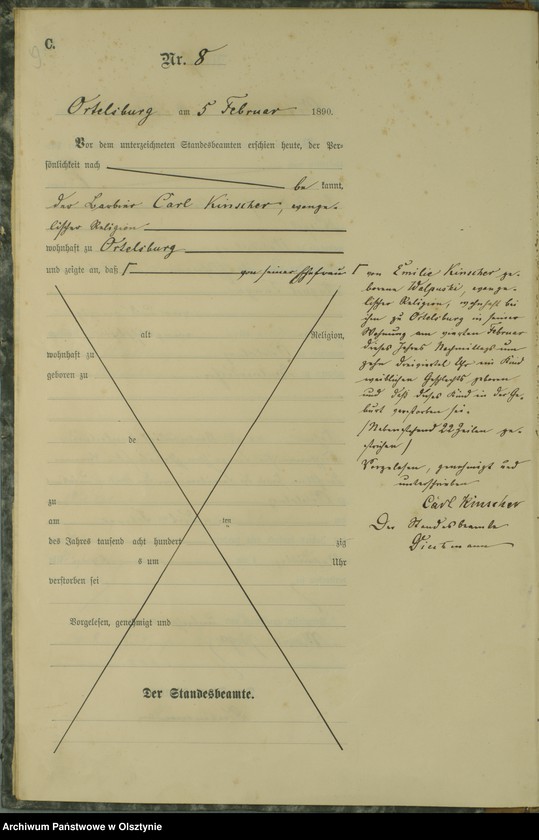 C.
Nr. 8
Ortelsburg am 5 Februar 1890.
Vor dem unterzeichneten Standesbeamten erschien heute, der Per-
sönlichkeit nach
be kannt,
der Barbier Carl Kinscher, evange-
lischer Religion
wohnhaft zu Ortelsburg
und zeigte an, daß von seiner Ehefrau
alt Religion,
wohnhaft zu
geboren zu
de
zu
am ten
des Jahres tausend acht hundert zig
s um Uhr
verstorben sei
Vorgelesen, genehmigt und
Der Standesbeamte.
von Emilie Kinscher ge-
borene evange-
lischer Religion, wohnhaft bei
ihm zu Ortelsburg in seiner
Wohnung am vierten Februar
dieses Jahres Nachmittags um
zehn dreiviertel Uhr ein Kind
weiblichen Geschlechts geboren
und daß dieses Kind in der Ge-
burt verstorben sei.
(Nebenstehend 22 Zeilen ge-
strichen)
Vorgelesen, genehmigt und
unterschrieben
Carl Kinscher
Der Standesbeamte
Archiwum Państwowe w Olsztynie